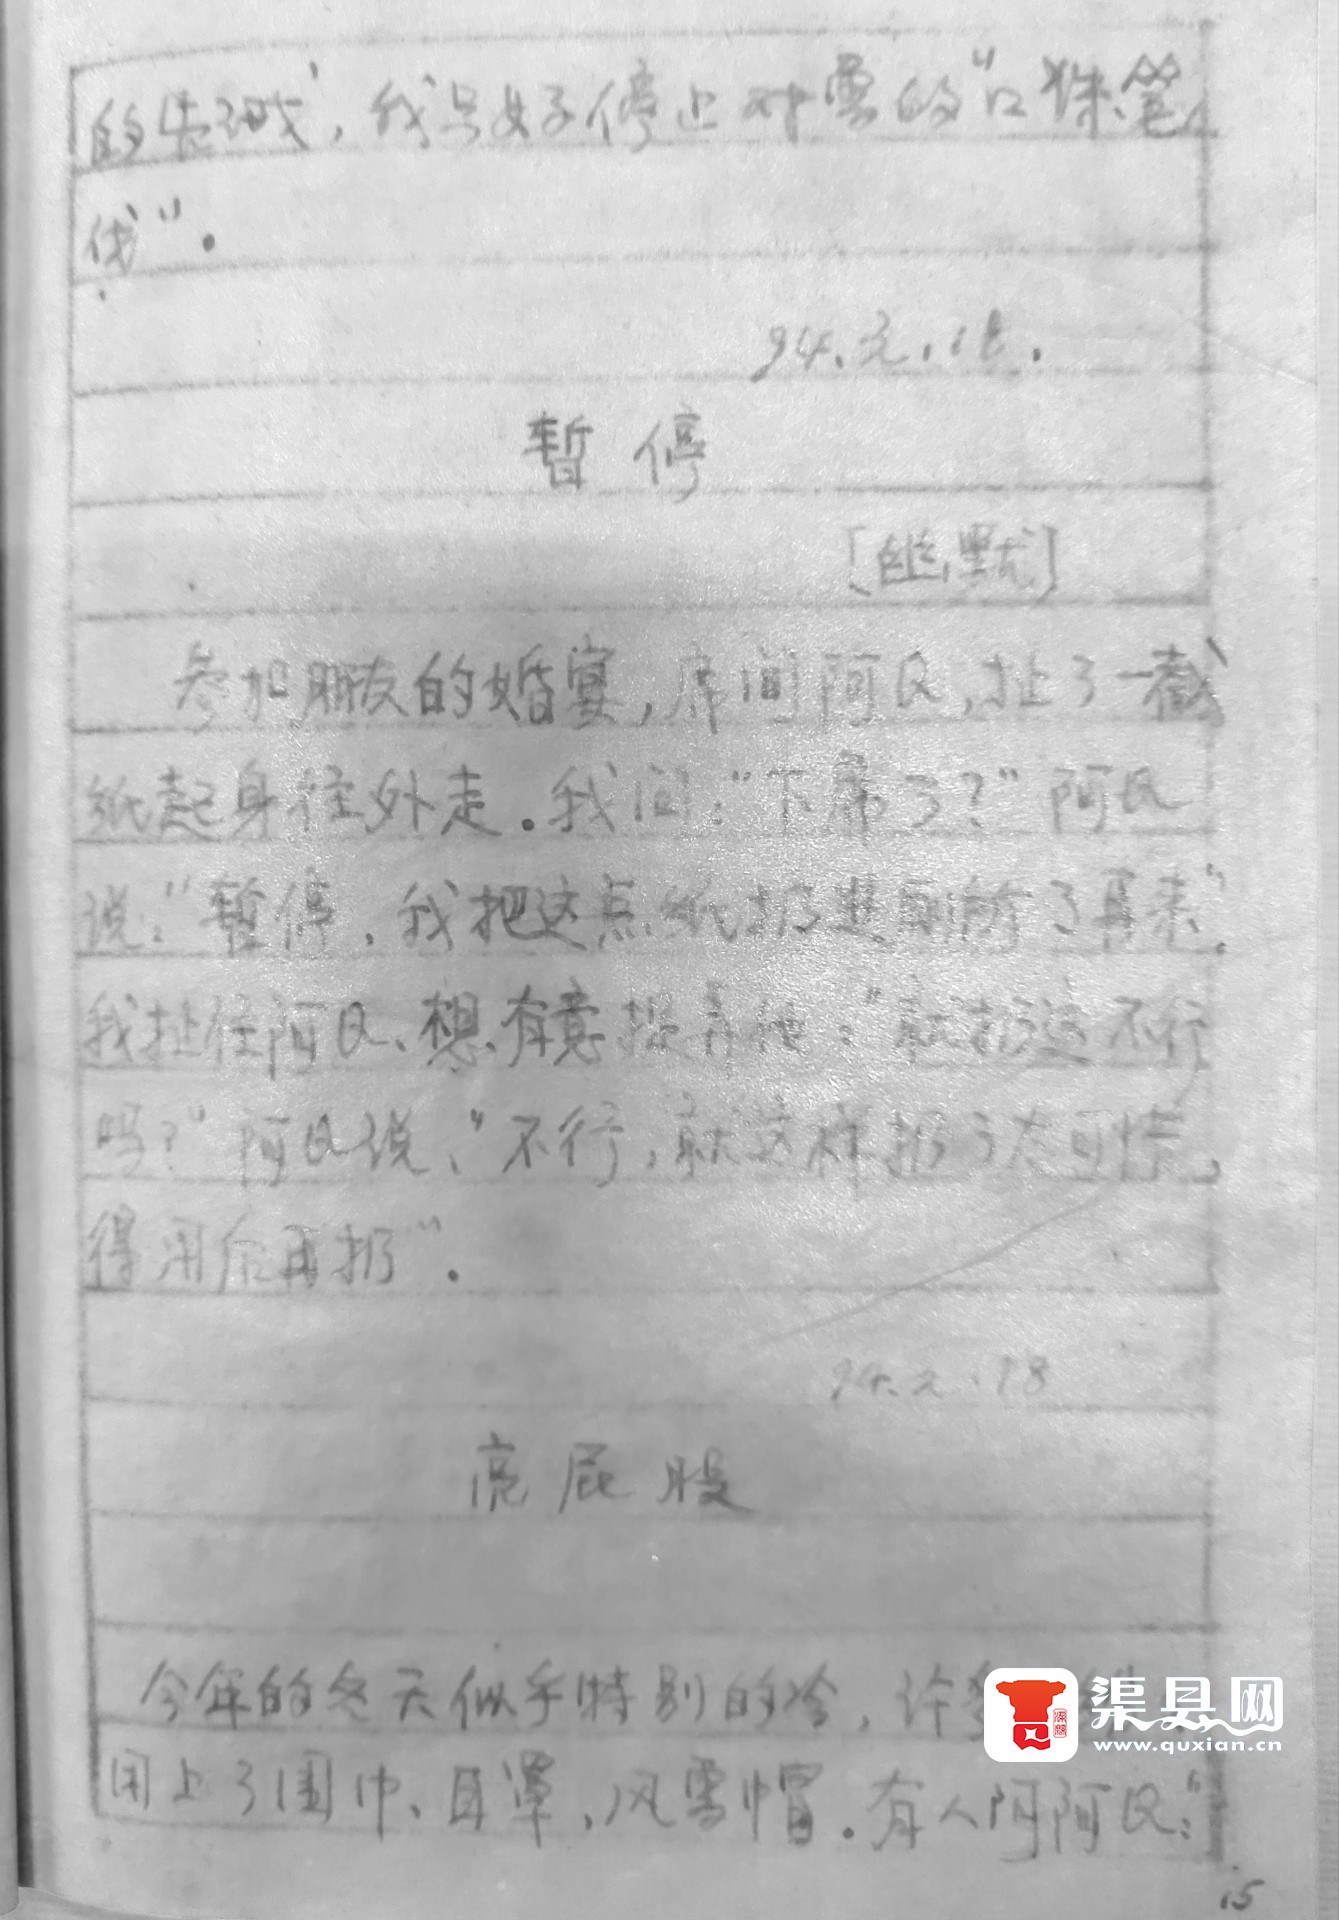 的告诫，我只好停止对雪的“口殊笔
伐”。
94.元.18.
暂停
[幽默]
参加朋友的婚宴，席间阿Q，扯了一截
纸起身往外走。我问：“下席了？”阿Q
说：“暂停，我把这点纸扔进厕所了再来”。
我扯住阿Q、想有意捉弄他：“就扔这不行
吗？”阿Q说、“不行，就这样扔了太可惜，
得用后再扔”。
94.元.18
亮屁股
今年的冬天似乎特别的冷，许多
用上了围巾、耳罩，风雪帽。有人问阿Q：“
15
渠县网
www.quxian.cn